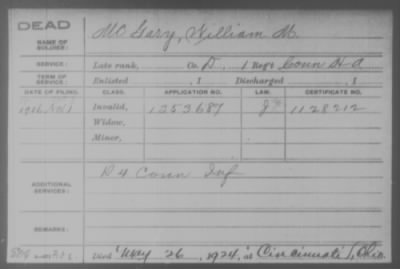 DEAD
NAME OF SOLDIER: Mc Gary, William M.
SERVICE: Late rank, Co. D, 1 Reg't Conn H. A
TERM OF SERVICE: Enlisted , 1 Discharged , 1
DATE OF FILING. CLASS. APPLICATION NO. LAW. CERTIFICATE NO.
Invalid, 1253687 1128212
Widow,
Minor,
ADDITIONAL SERVICES: D 4 Conn Inf
REMARKS:
Died May 26, 1924, at Cincinnati, Ohio